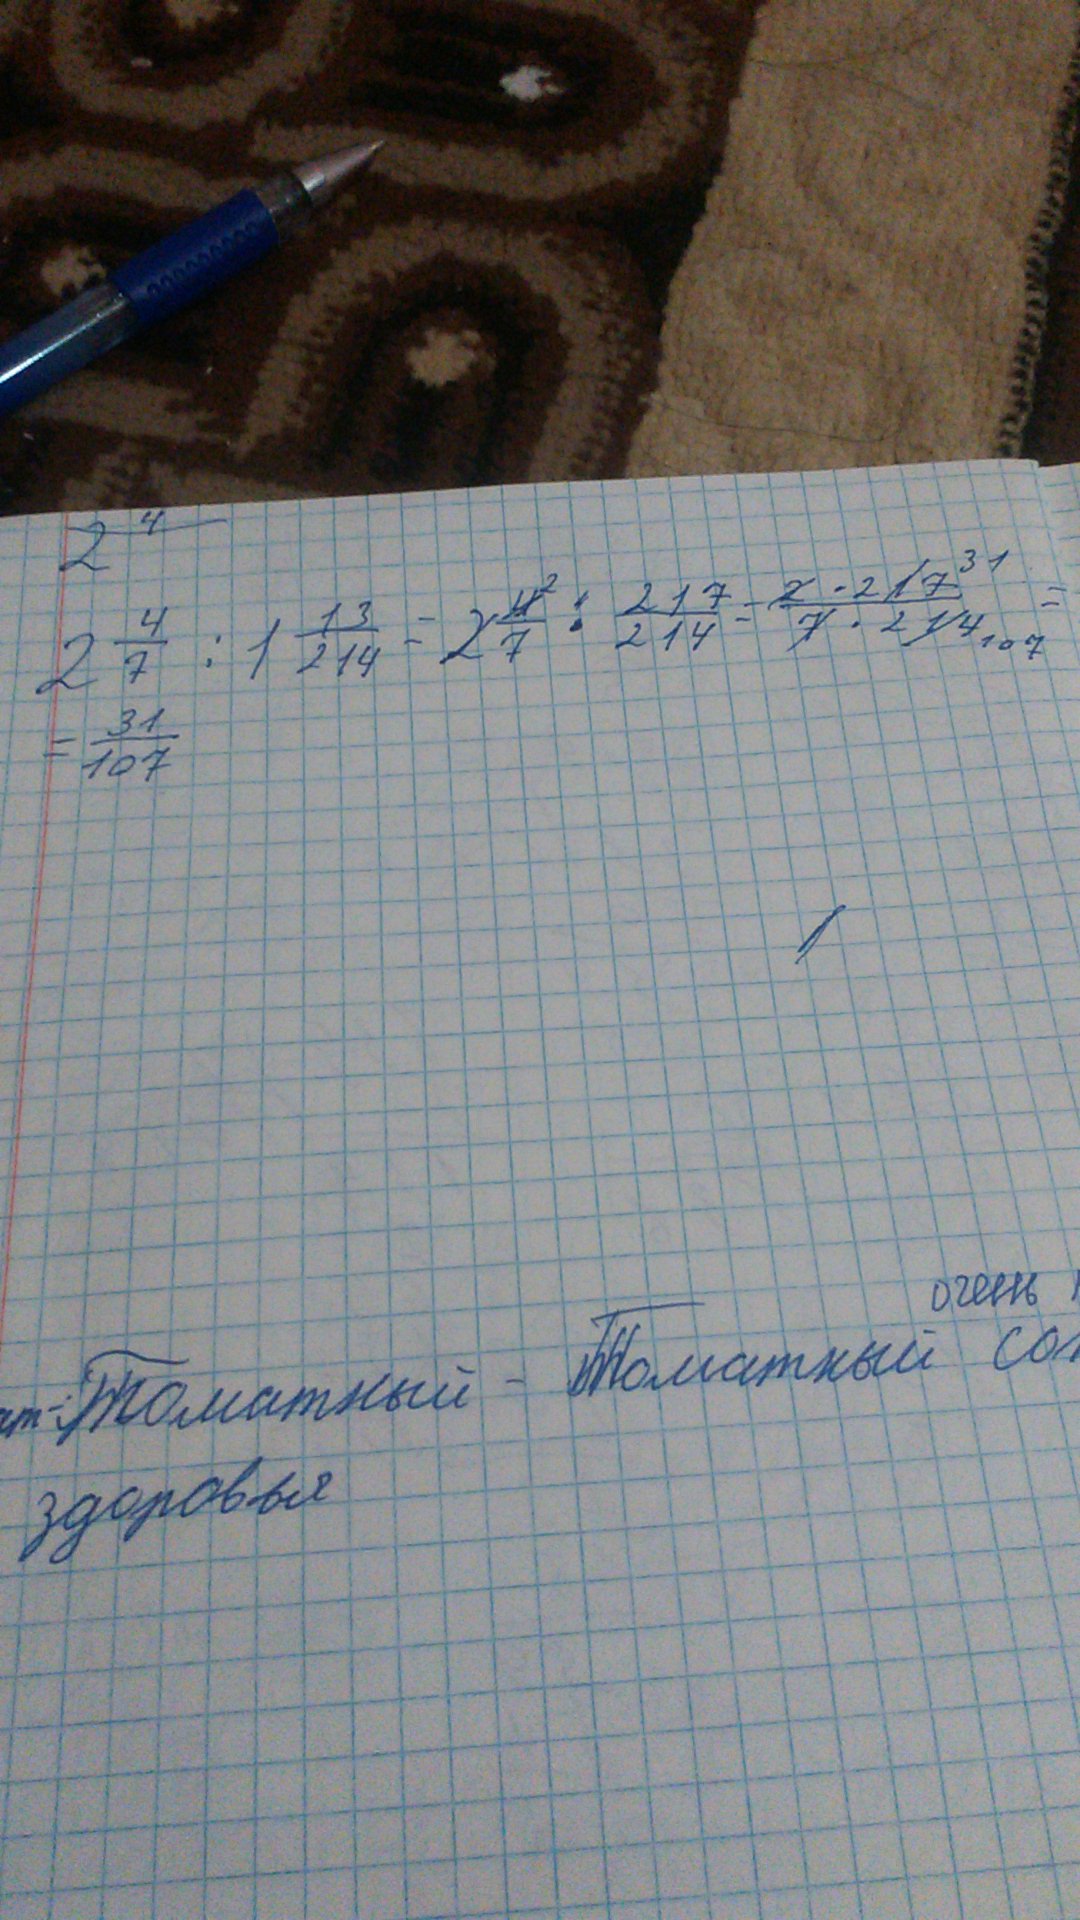 2 4
2 4/7 : 1 13/214 = 2 4/7 2 : 217/214 = 2 · 217/7 · 214 31 107 =
= 31/107
1
очень
Томатный - Томатный
здоровья